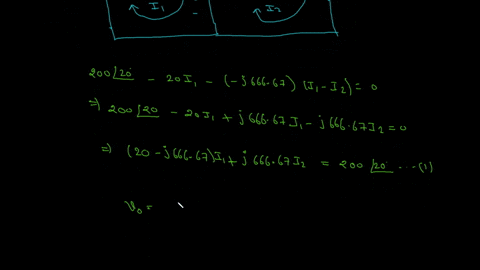 I₁ I₂
200∠20° - 20I₁ - (-j666.67) (I₁-I₂) = 0
⇒ 200∠20 - 20I₁ + j666.67I₁ - j666.67I₂ = 0
⇒ (20 - j666.67)I₁ + j666.67I₂ = 200∠20° ---(1)
V₀ =